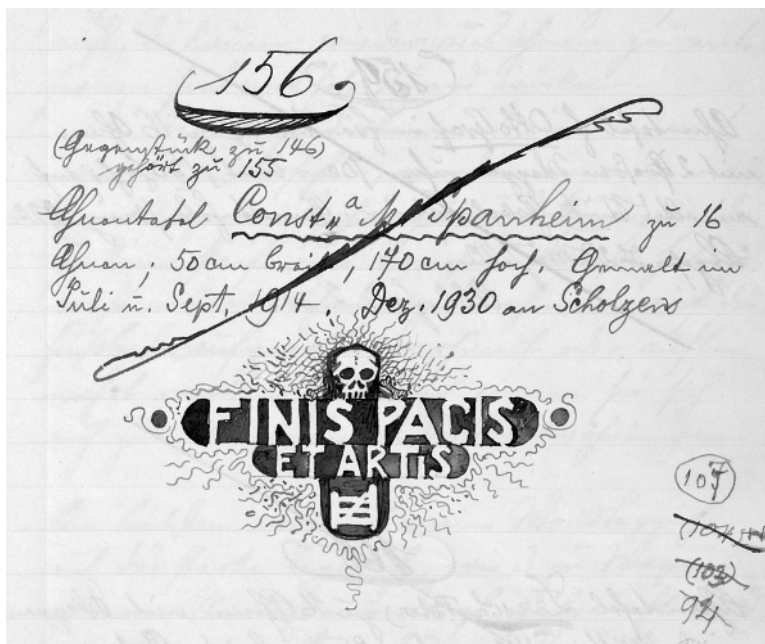 156
(Gegenstück zu 146)
gehört zu 155
Ahnentafel Const„a M. Spanheim zu 16
Ahnen; 50 cm breit, 170 cm hoch. Gemalt im
Juli u. Sept. 1914. Dez. 1930 an Scholzens
FINIS PACIS
ET ARTIS
107
(103)
94